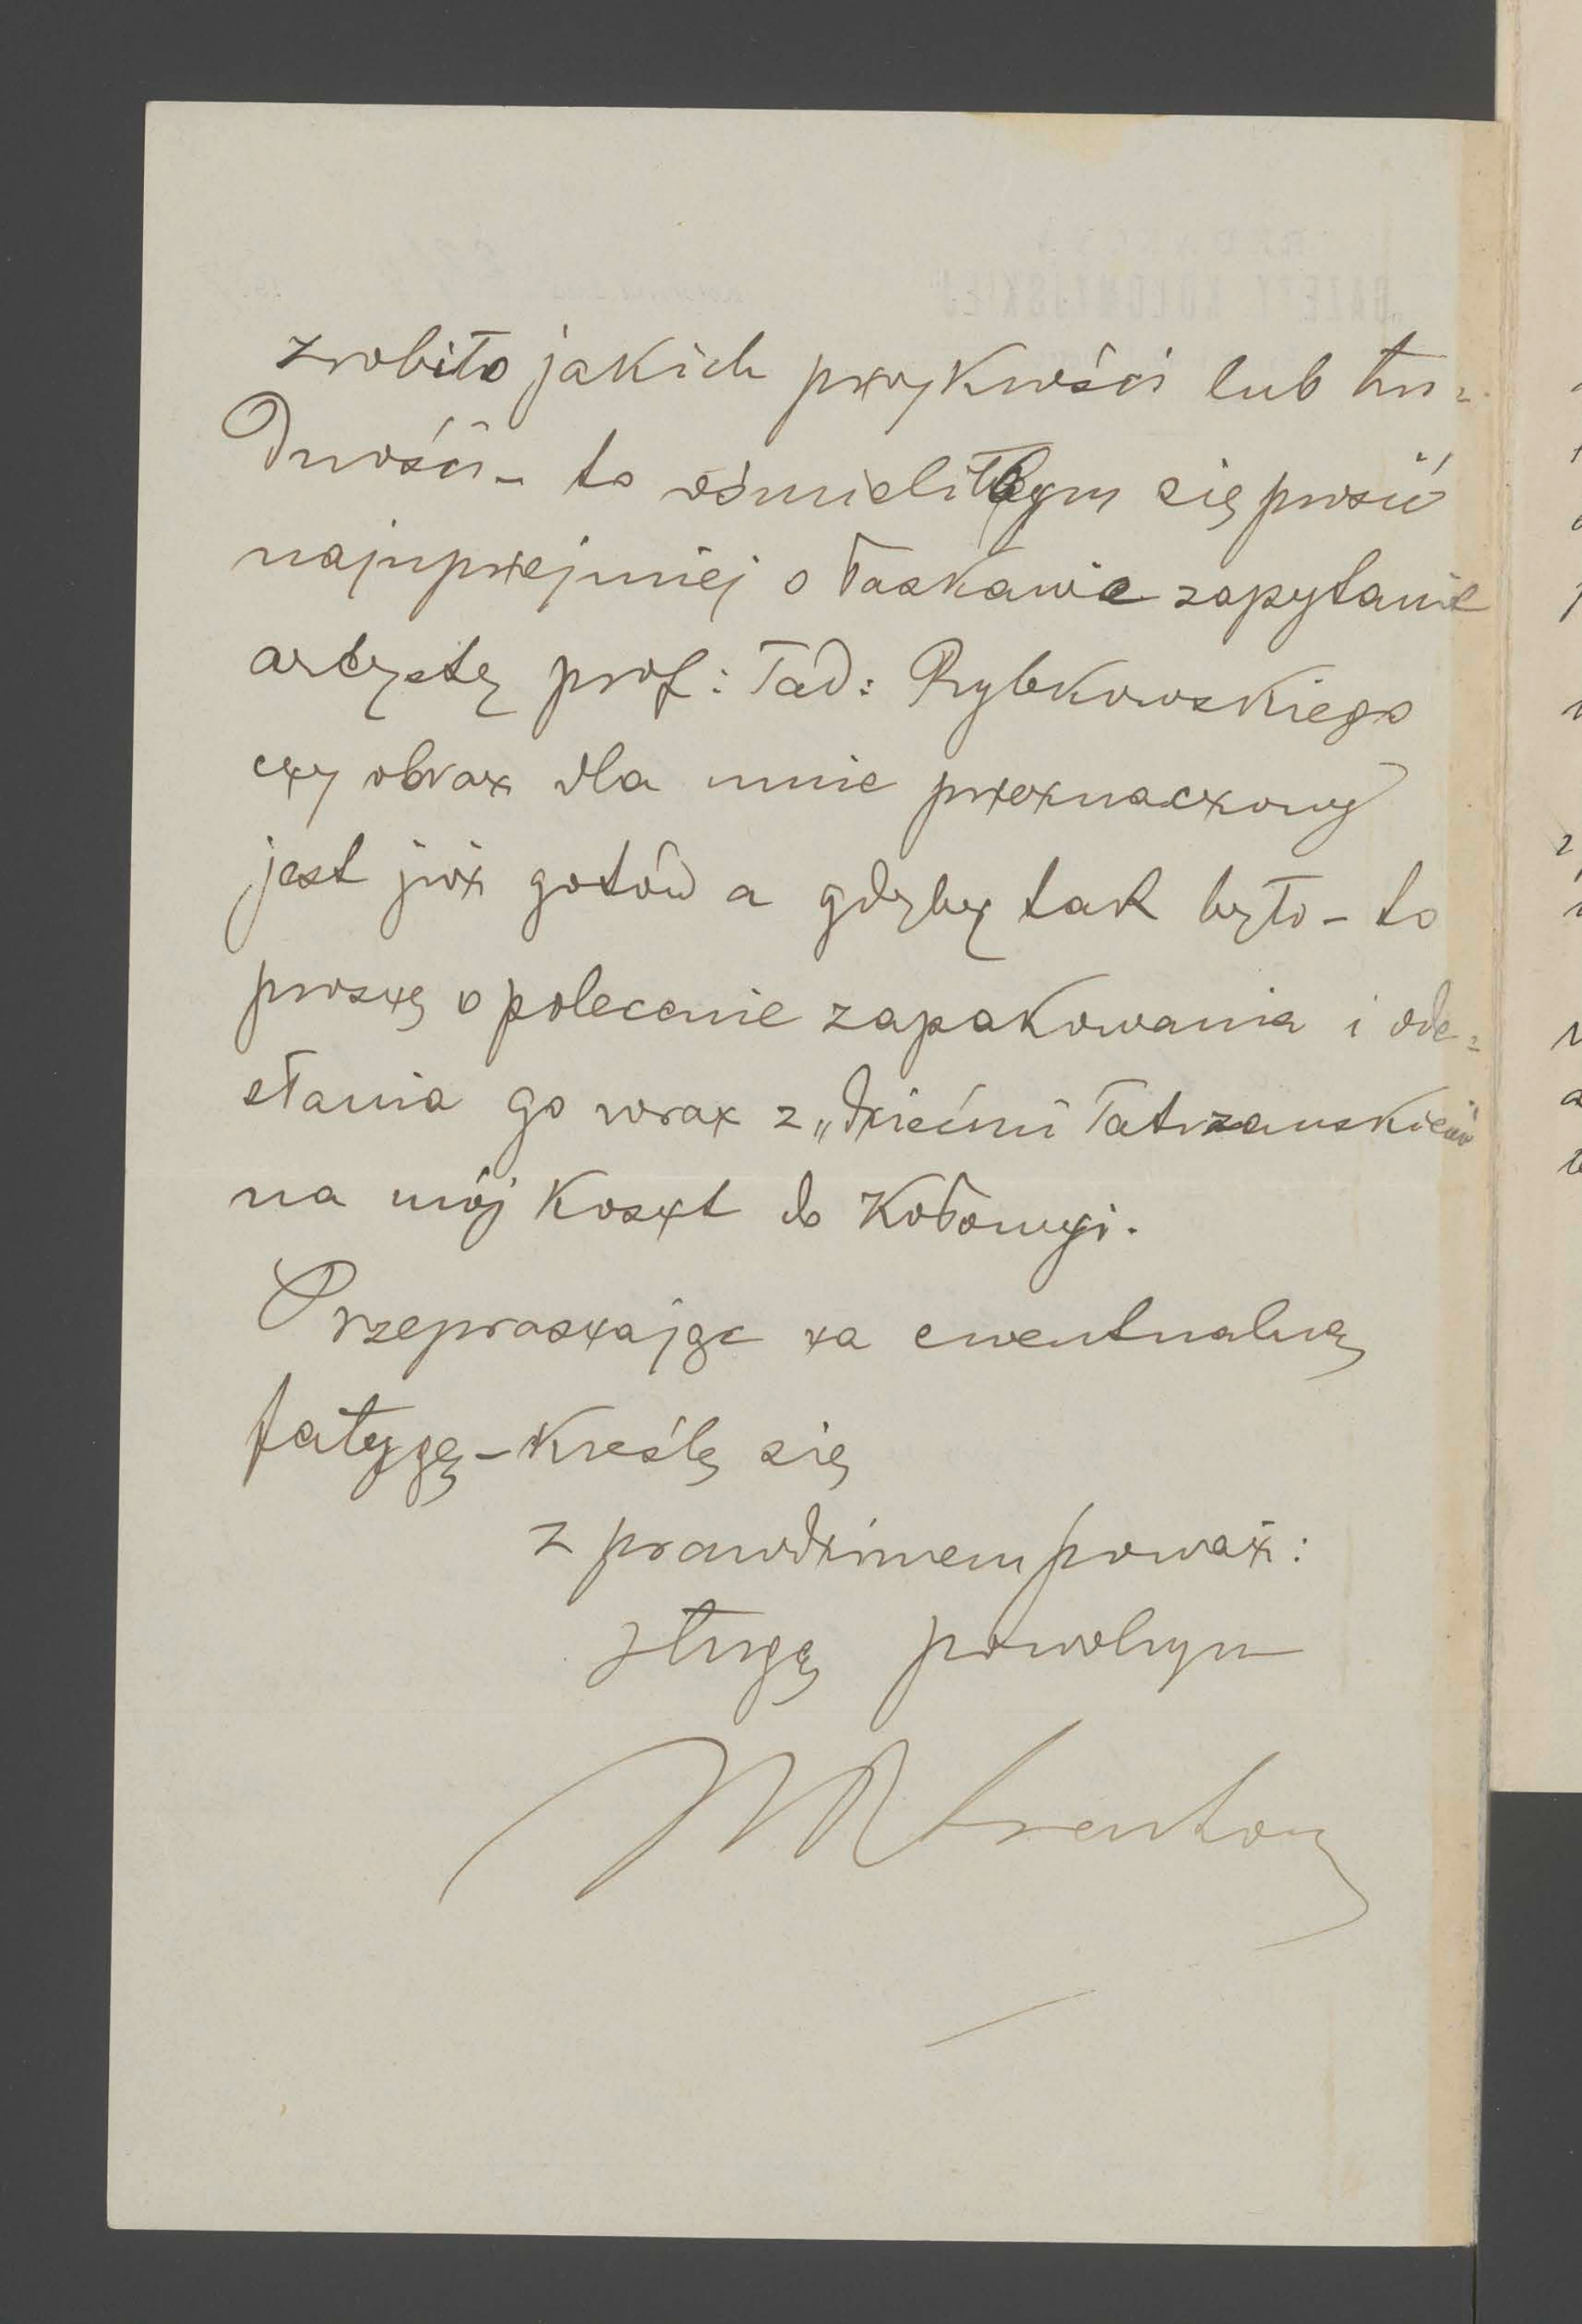 zrobiło jakich przykrości lub tru=
dności – to ośmieliłbym się prosić
najuprzejmiej o łaskawie zapytanie
artystę prof: Tad: Rybkowskiego
czy obraz dla mnie przeznaczony
jest już gotów a gdyby tak było – to
proszę o polecenie zapakowania i ode=
słania go wraz z „dziećmi Tatrzańskiemi
na mój koszt do Kołomyi.
Przepraszając za ewentualną
fatygę – kreślę się
z prawdziwem poważ:
sługą powolnym